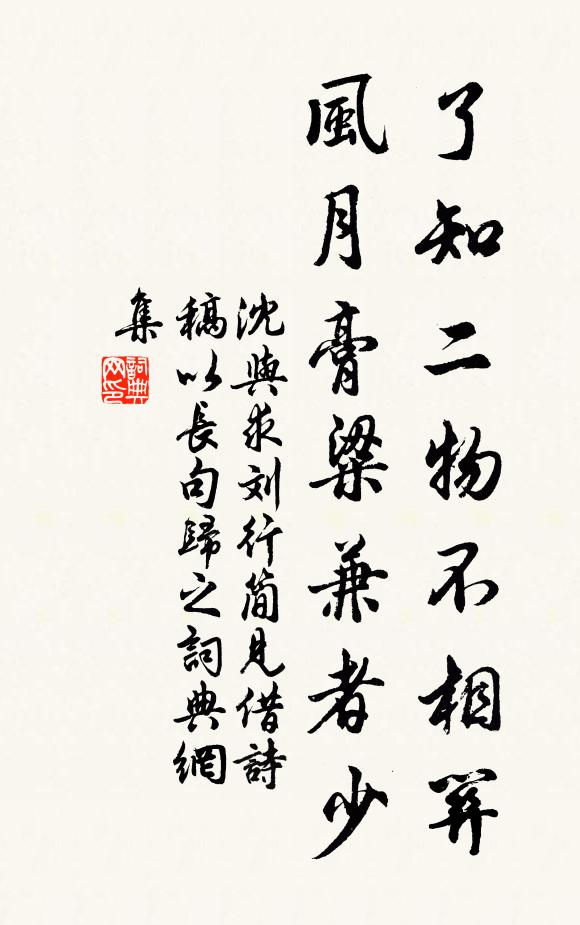 了知二物不相関
風月膏粱兼者少
沈與求刘行简見借詩
稿以長句歸之詞典網
集
詞典
网印